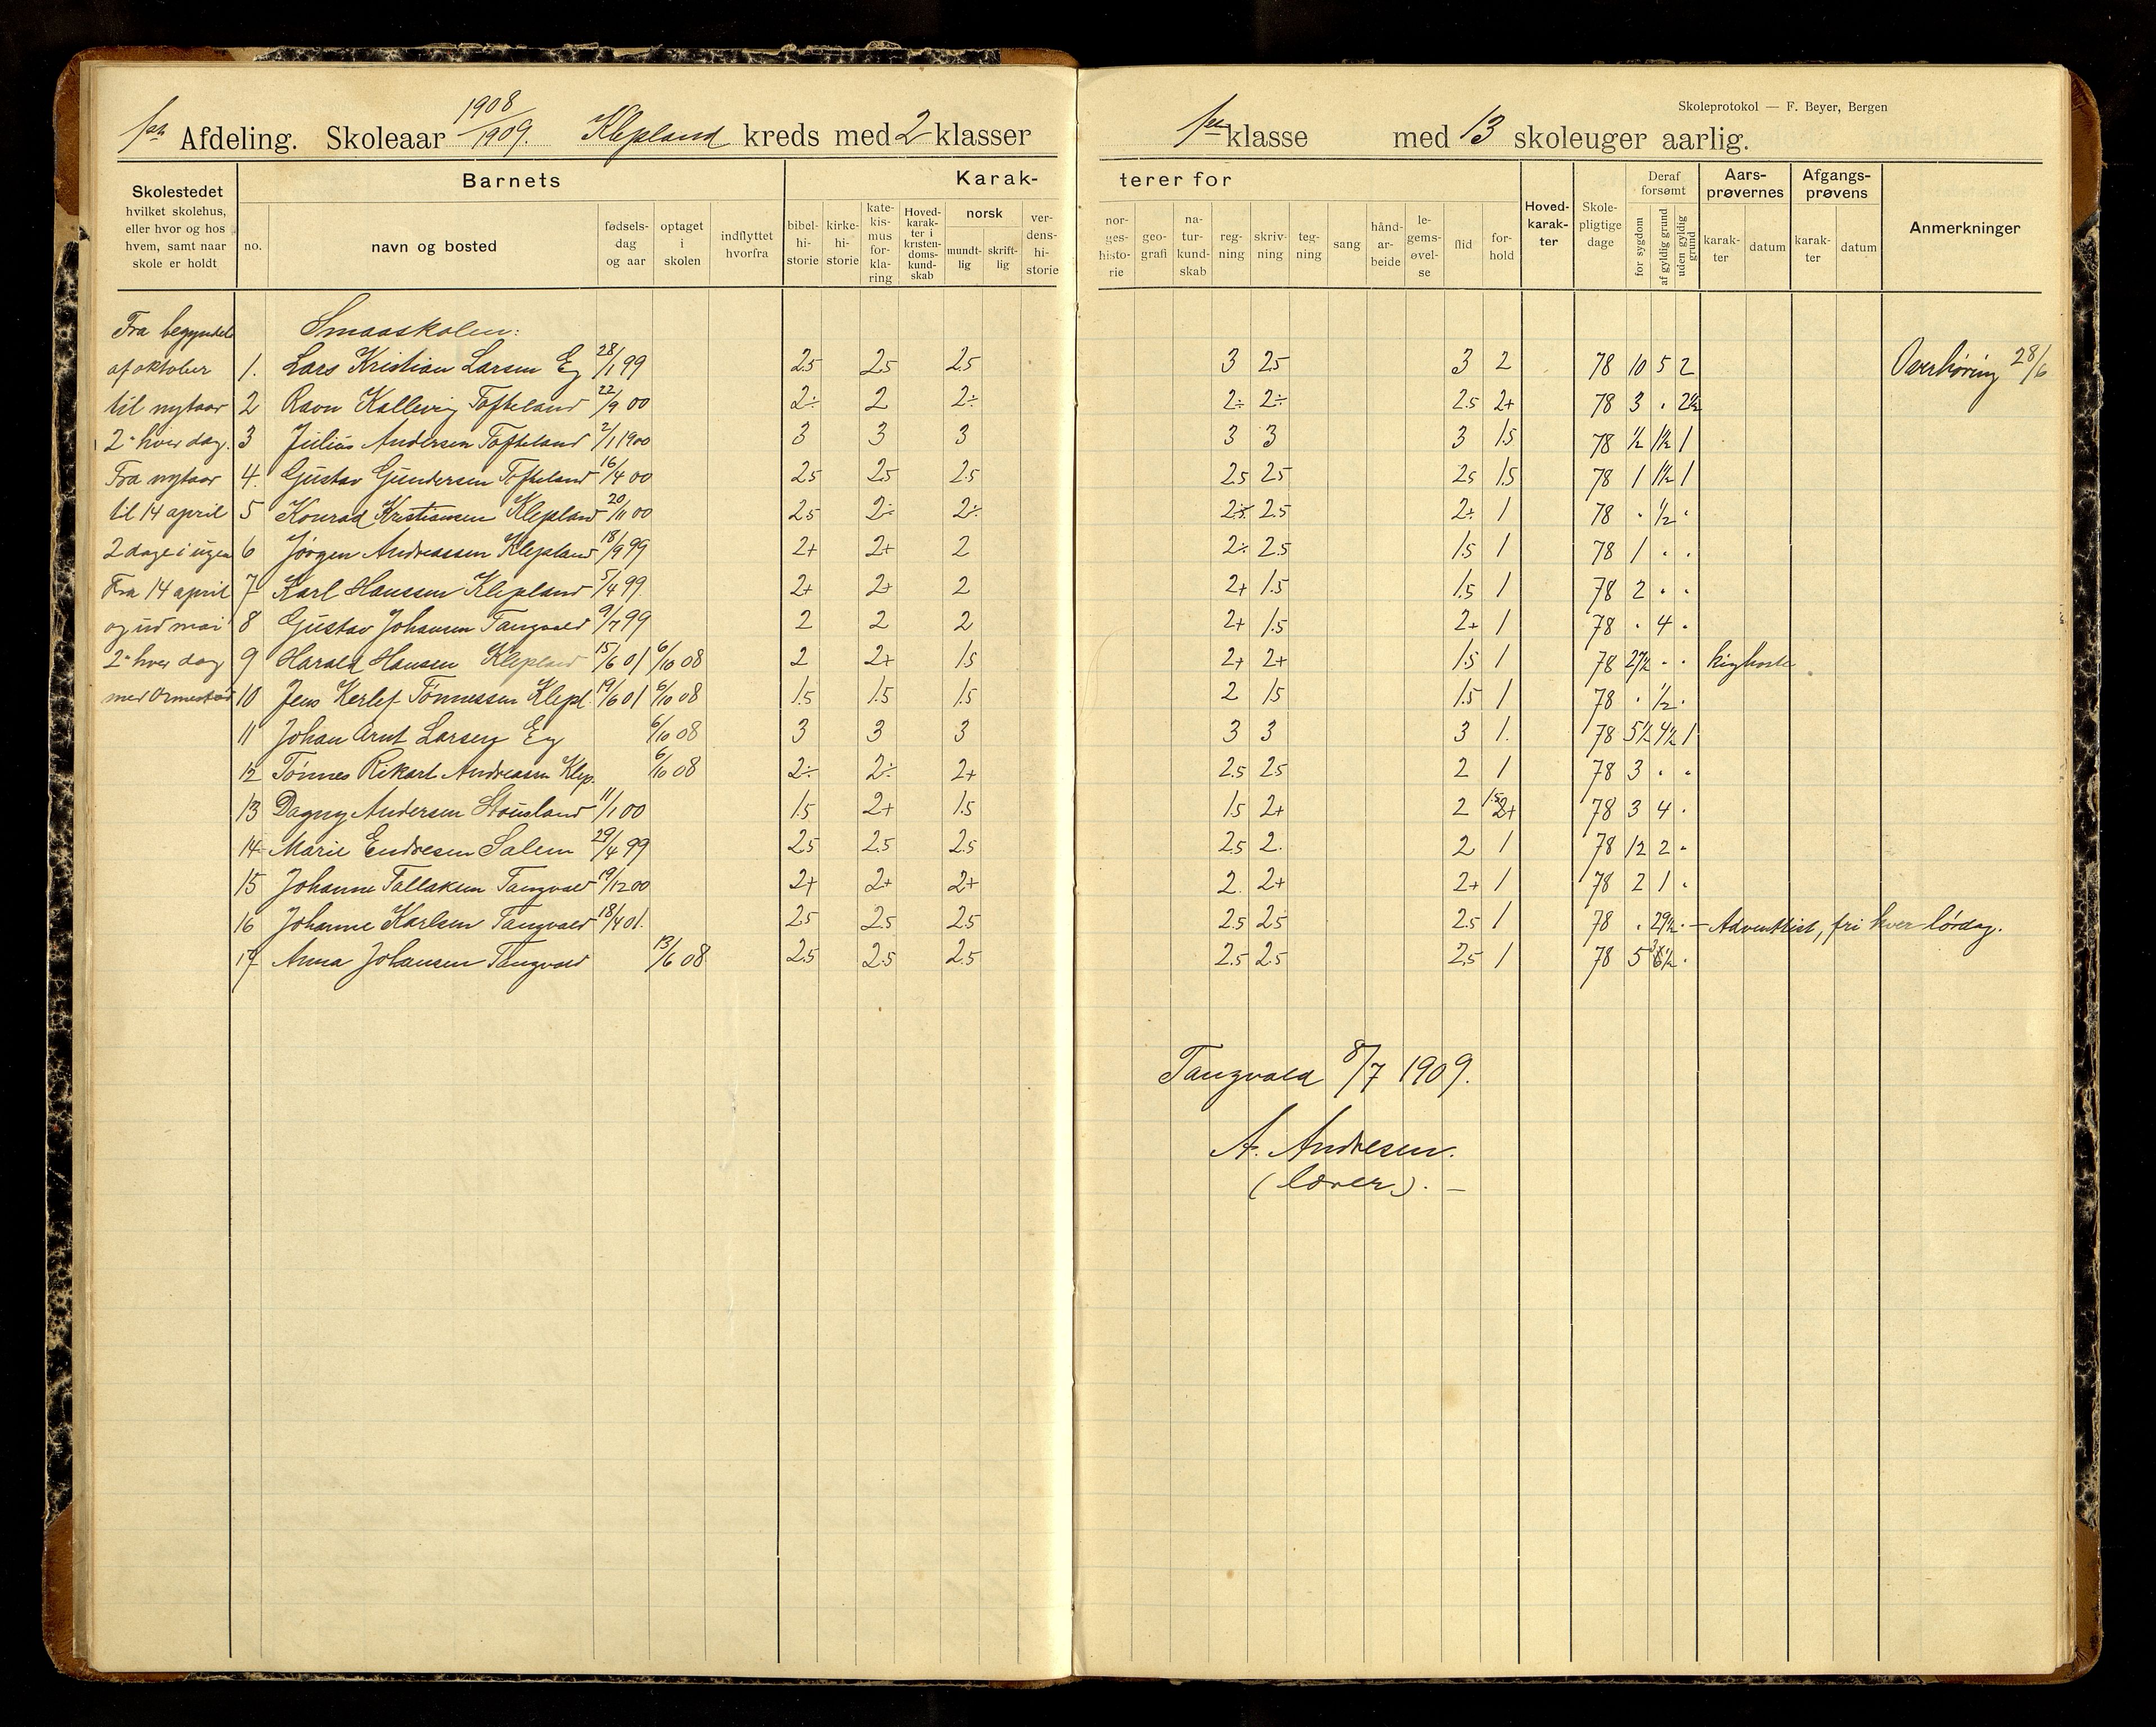 Skoleprotokol — F. Beyer, Bergen
1ste Afdeling. Skoleaar 1908/1909. Klepland kreds med 2 klasser
1ste klasse med 13 skoleuger aarlig.
Skolestedet hvilket skolehus, eller hvor og hos hvem, samt naar skole er holdt
Barnets
no. navn og bosted fødsels-dag og aar optaget i skolen indflyttet hvorfra
Karak-terer for
bibel-hi-storie kirke-hi-storie kate-kis-mus for-kla-ring Hoved-karak-ter i kristen-doms-kund-skab norsk mundt-lig skrift-lig ver-dens-hi-storie
nor-ges-histo-rie geo-grafi na-tur-kund-skab reg-ning skriv-ning teg-ning sang hånd-ar-beide le-gems-øvel-se flid for-hold
Hoved-karak-ter Skole-pligtige dage Deraf forsømt for sygdom af gyldig grund uden gyldig grund
Aars-prøvernes karak-ter datum Afgangs-prøvens karak-ter datum Anmerkninger
Fra begyndels Smaaskolen:
af oktober 1. Lars Kristian Larsen Eg 28/1 99 2.5 2.5 2.5 3 2.5 3 2 78 10 5 2 Overhøring 28/6
til nytaar 2 Ravn Kallevig Tofteland 22/9 00 2÷ 2 2÷ 2÷ 2÷ 2.5 2+ 78 3 . 2½
2. hver dag. 3 Julius Andersen Tofteland 2/1 1900 3 3 3 3 3 3 1.5 78 ½ 1½ 1
Fra nytaar 4. Gustav Gundersen Tofteland 16/4 00 2.5 2.5 2.5 2.5 2.5 2.5 1.5 78 1 1½ 1
til 14 april 5 Konrad Kristiansen Klepland 20/11 00 2.5 2÷ 2÷ 2÷ 2.5 2÷ 1 78 . ½ .
2 dage i ugen 6 Jørgen Andreassen Klepland 18/9 99 2+ 2+ 2 2÷ 2.5 1.5 1 78 1 . .
Fra 14 april 7 Karl Hanssen Klepland 5/4 99 2+ 2+ 2 2+ 1.5 1.5 1 78 2 . .
og ud mai 8 Gustav Johansen Tangvald 9/7 99 2 2 2 2+ 1.5 2+ 1 78 . 4 .
2. hver dag 9 Harald Hansen Klepland 15/6 01 6/10 08 2 2+ 1.5 2+ 2+ 1.5 1 78 27½ . . kighoste
med Ormestad 10 Jens Kerlef Tønnessen Klepl. 19/6 01 6/10 08 1.5 1.5 1.5 2 1.5 1.5 1 78 . ½ .
11 Johan Arnt Larsen Eg 6/10 08 3 3 3 3 3 3 1. 78 5½ 4½ 1
12 Tønnes Rikart Andreassen Klep. 6/10 08 2÷ 2÷ 2+ 2.5 2.5 2 1 78 3 . .
13 Dagny Andersen Stausland 11/1 00 1.5 2+ 1.5 1.5 2+ 2 1.5 2+ 78 3 4 .
14 Marie Endresen Salem 29/4 99 2.5 2.5 2.5 2.5 2. 2 1 78 12 2 .
15 Johanne Tallaksen Tangvald 19/12 00 2+ 2+ 2+ 2. 2+ 2+ 1 78 2 1 .
16 Johanne Karlsen Tangvald 18/4 01. 2.5 2.5 2.5 2.5 2.5 2.5 1 78 . 29½ . — Adventist, fri hver lørdag.
17 Anna Johansen Tangvald 13/6 08 2.5 2.5 2.5 2.5 2.5 2.5 1 78 5 .
Tangvald 8/7 1909.
A. Andresen.
(lærer). —